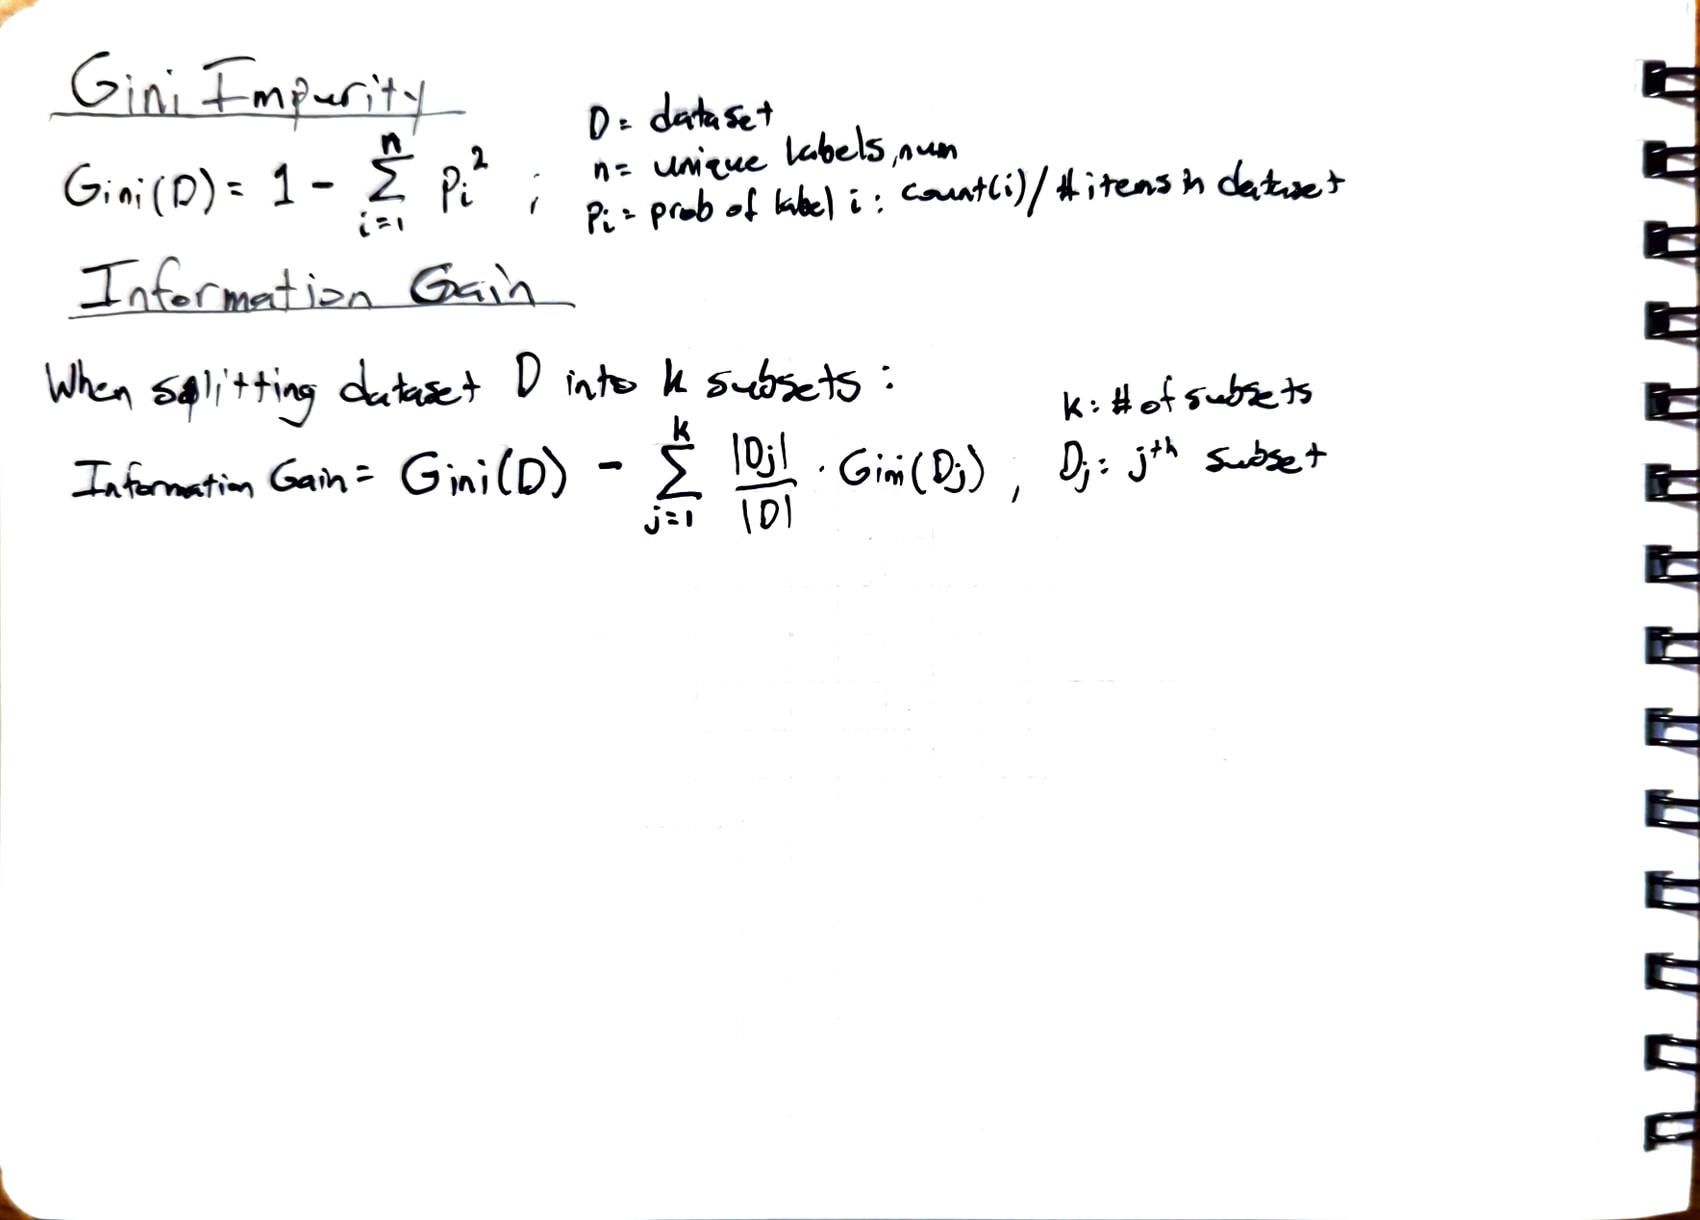 Gini Impurity
Gini(D) = 1 - n Σ i=1 Pi² ;
D = dataset
n = unique labels, num
Pi = prob of label i : count(i) / # items in dataset
Information Gain
When splitting dataset D into k subsets :
Information Gain = Gini(D) - k Σ j=1 |Dj| / |D| · Gini(Dj) ,
k : # of subsets
Dj : jth subset